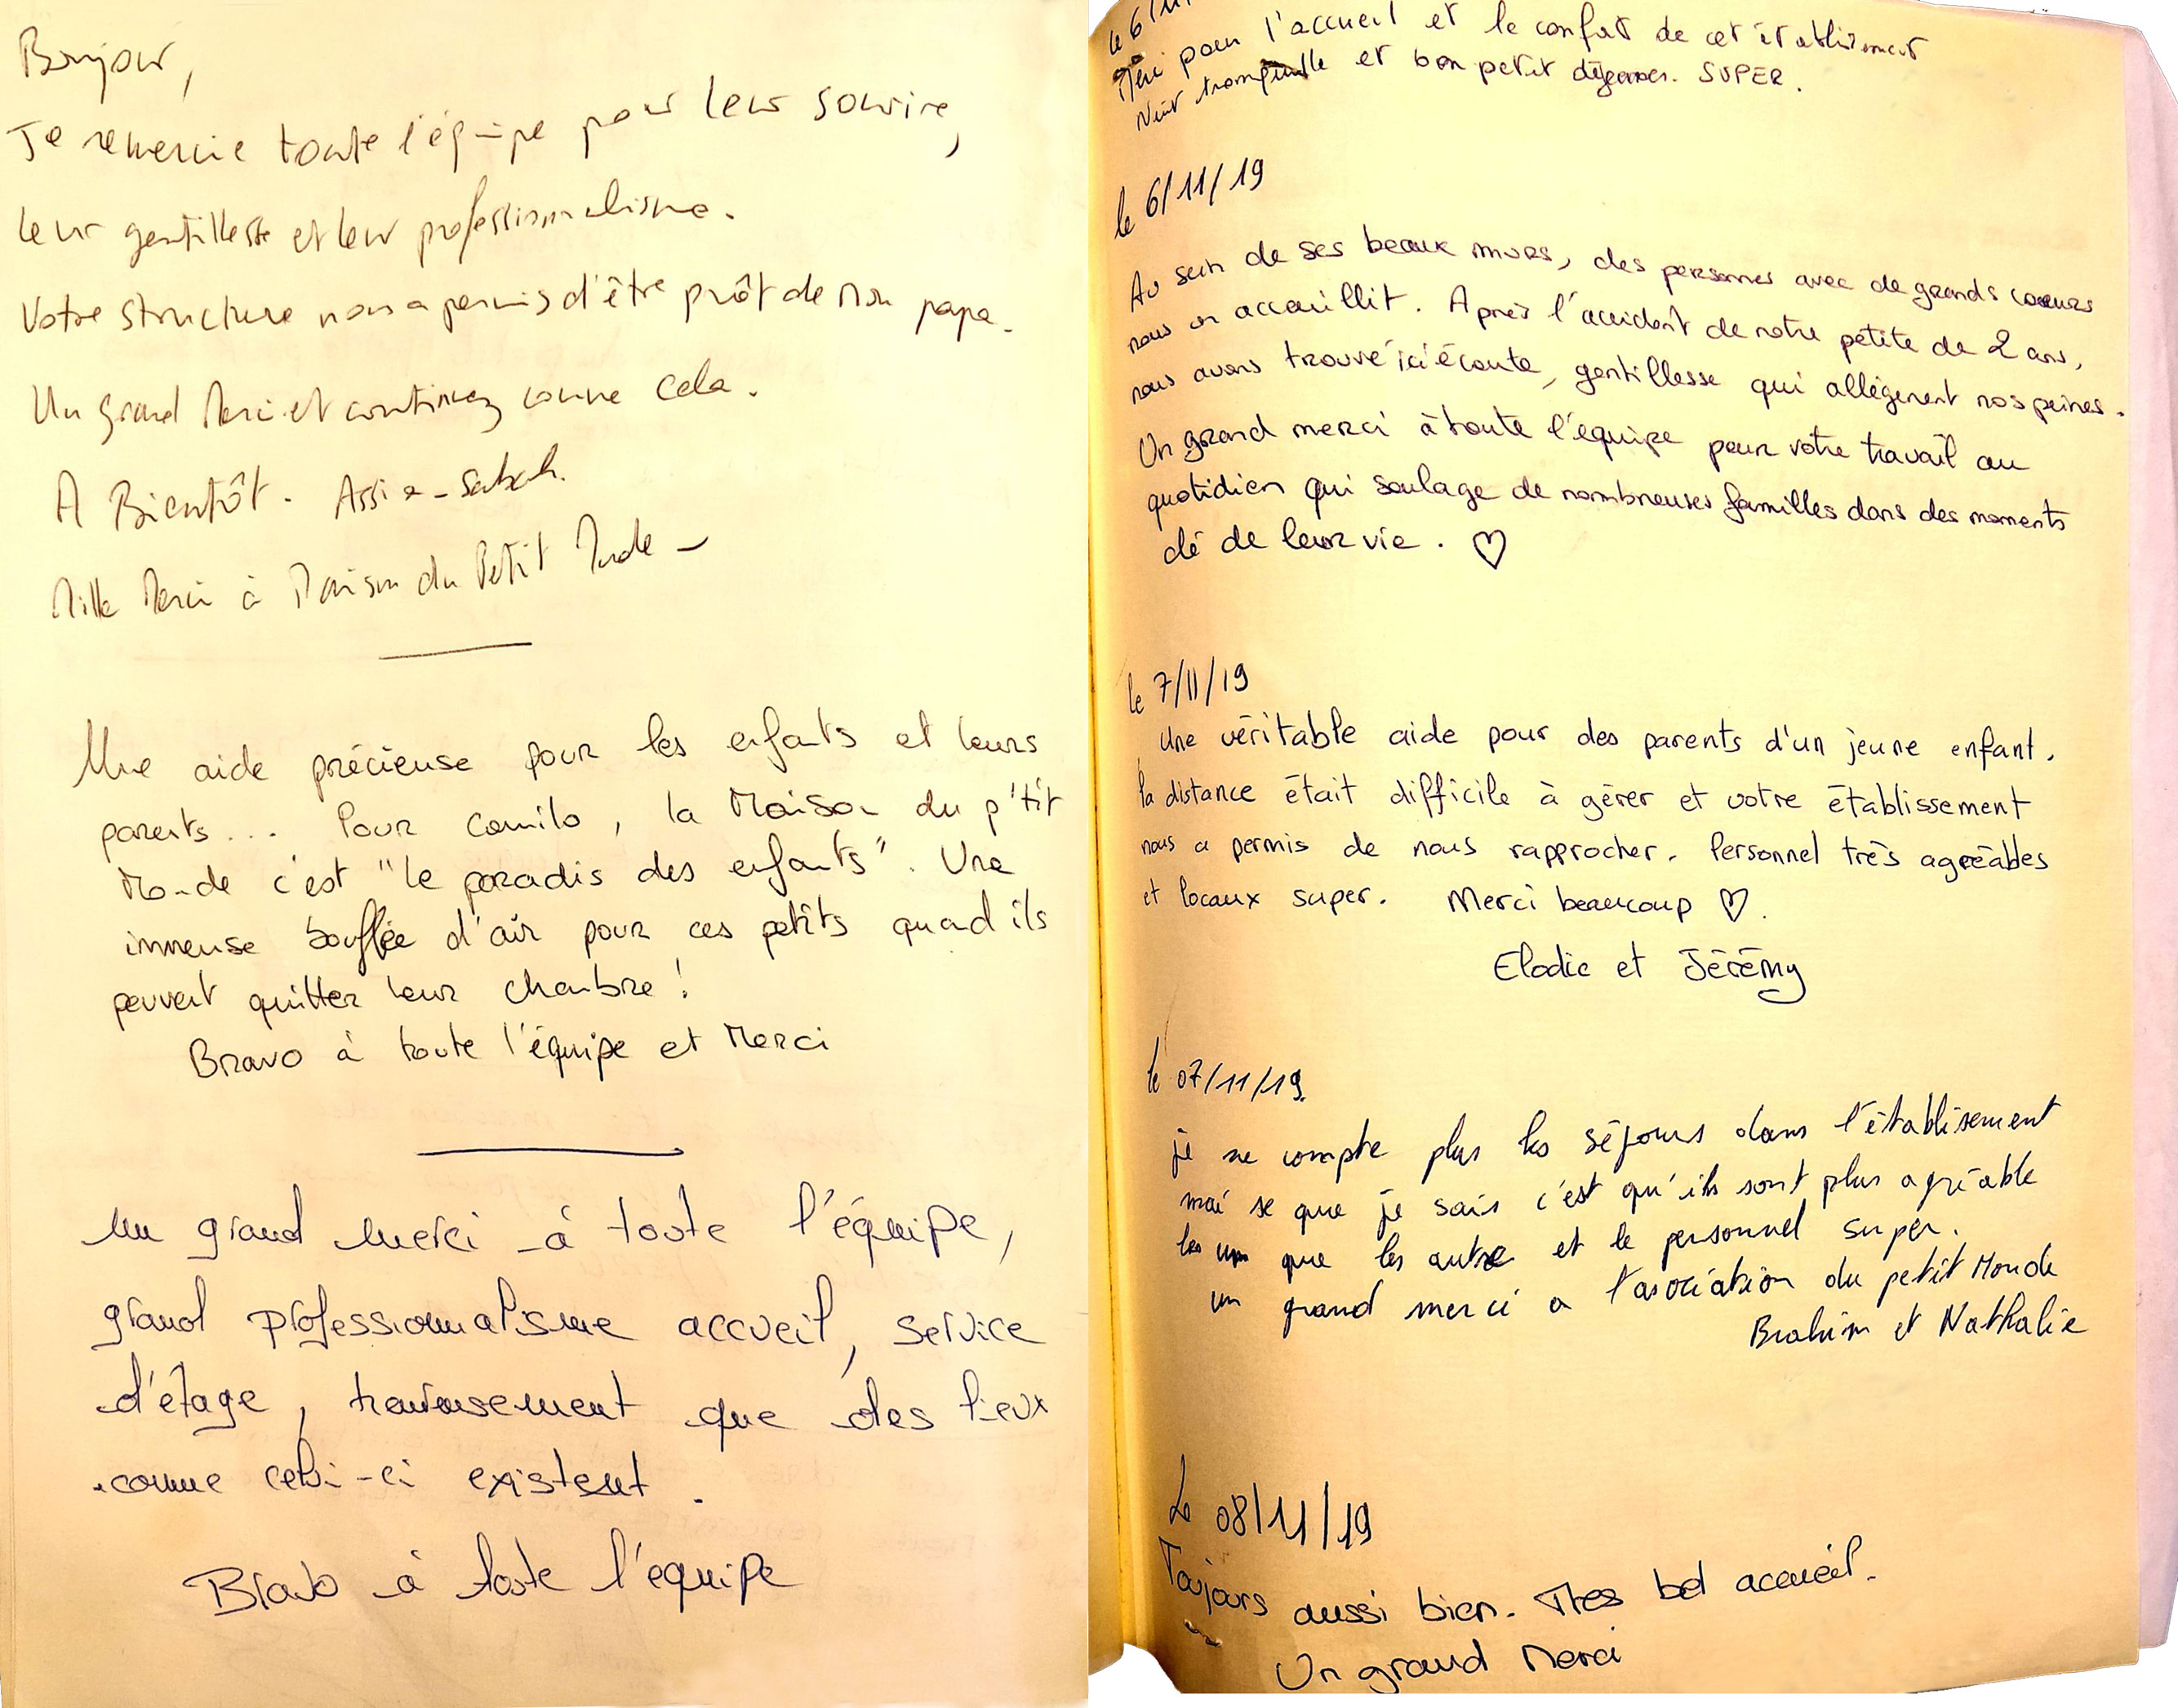 Bonjour,
Je remercie toute l'équipe pour leur sourire,
leur gentillesse et leur professionnalisme.
Votre structure nous a permis d'être prôt de mon papa.
Un grand Merci et continuez comme cela.
A Bientôt. Assia-Sabah.
Mille Merci à Maison du Petit Monde -
Une aide précieuse pour les enfants et leurs
parents... Pour Camilo, la Maison du p'tit
Monde c'est "le paradis des enfants". Une
immense bouffée d'air pour ces petits quand ils
peuvent quitter leur chambre!
Bravo à toute l'équipe et Merci
un grand merci à toute l'équipe,
grand professionnalisme accueil, service
d'étage, heureusement que des lieux
comme celui-ci existent.
Bravo à toute l'équipe
le 6/11
Merci pour l'accueil et le confort de cet établissement
Nuit tranquille et bon petit déjeuner. SUPER.
le 6/11/19
Au sein de ses beaux murs, des personnes avec de grands coeurs
nous on accueillit. Après l'accident de notre petite de 2 ans,
nous avons trouvé ici écoute, gentillesse qui allègent nos peines.
Un grand merci à toute l'équipe pour votre travail au
quotidien qui soulage de nombreuses familles dans des moments
clé de leur vie. ♡
le 7/11/19
Une véritable aide pour des parents d'un jeune enfant.
la distance était difficile à gérer et votre établissement
nous a permis de nous rapprocher. Personnel très agréables
et locaux super. Merci beaucoup ♡.
Elodie et Jérémy
le 07/11/19
je ne compte plus les séjours dans l'établisement
mai se que je sais c'est qu'ils sont plus agréable
les un que les autre et le personnel super.
un grand merci a l'asociation du petit Monde
Brahim et Nathalie
Le 08/11/19
Toujours aussi bien. Tres bel accueil.
Un grand Merci